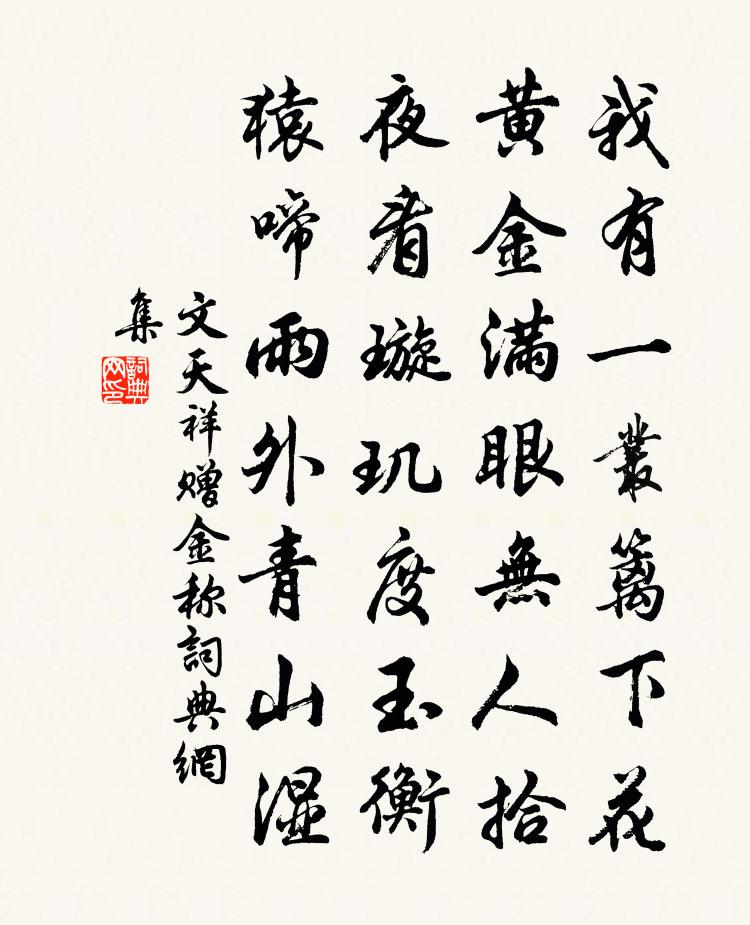 我有一叢籬下花
黃金滿眼無人拾
夜看璇玑度玉衡
猿啼雨外青山湿
文天祥赠金称詞典網
集
詞典
网印